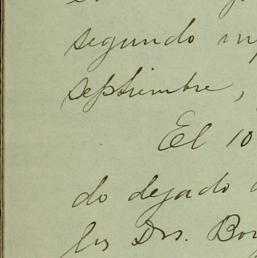 segundo
septiembre,
El 10
do dejado
los Drs.